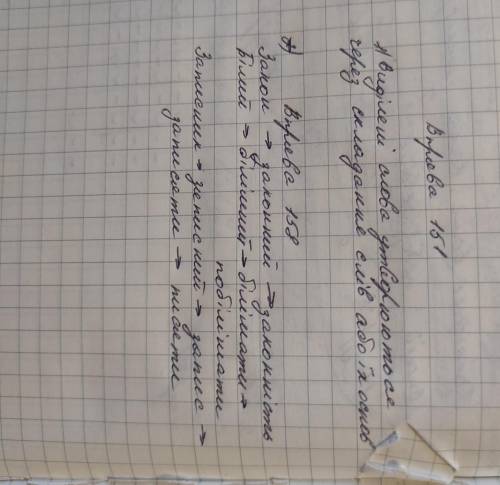 Вправа 151
1) Виділені слова утворюються
через складання слів або їх основ
Вправа 158
2) Закон → законний → законність
Білий → біліший → білішати →
побілішати
Записник → записний → запис →
записати → писати